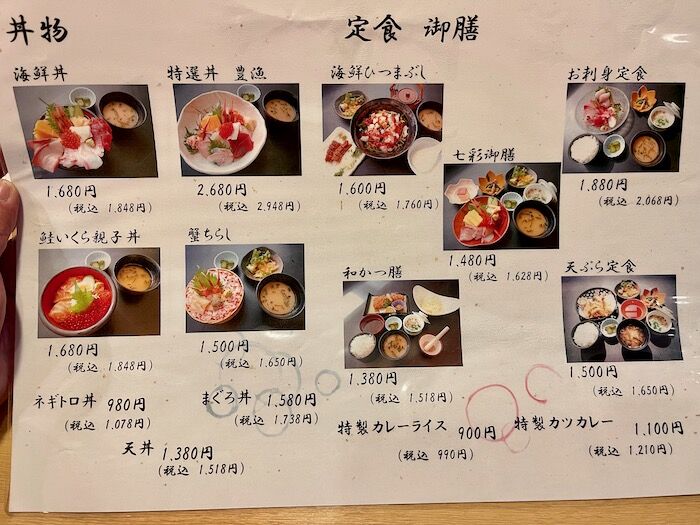 丼物
海鮮丼
1,680円
(税込 1,848円)
特選丼 豊漁
2,680円
(税込 2,948円)
鮭いくら親子丼
1,680円
(税込 1,848円)
蟹ちらし
1,500円
(税込 1,650円)
ネギトロ丼 980円
(税込 1,078円)
まぐろ丼 1,580円
(税込 1,738円)
天丼 1,380円
(税込 1,518円)
定食 御膳
海鮮ひつまぶし
1,600円
(税込 1,760円)
七彩御膳
1,480円
(税込 1,628円)
お刺身定食
1,880円
(税込 2,068円)
和かつ膳
1,380円
(税込 1,518円)
天ぷら定食
1,500円
(税込 1,650円)
特製カレーライス 900円
(税込 990円)
特製カツカレー 1,100円
(税込 1,210円)